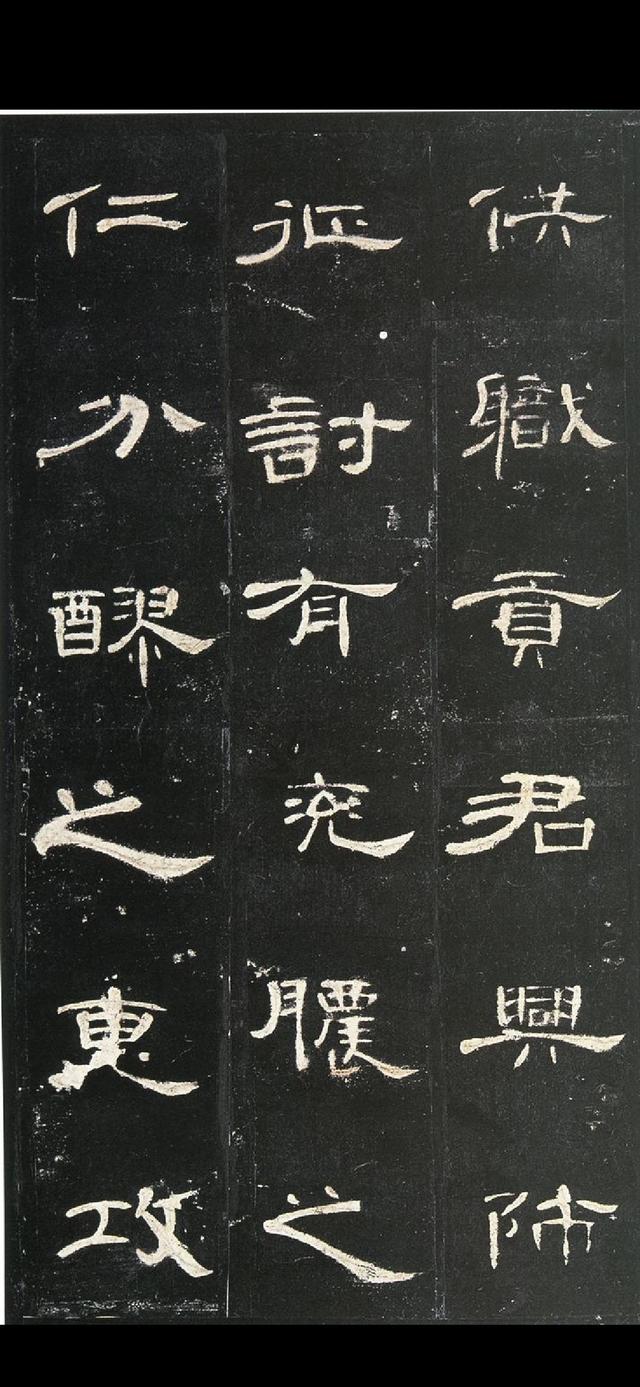 供職貢君興師
征討有兖膿之
仁分醪之惠攻